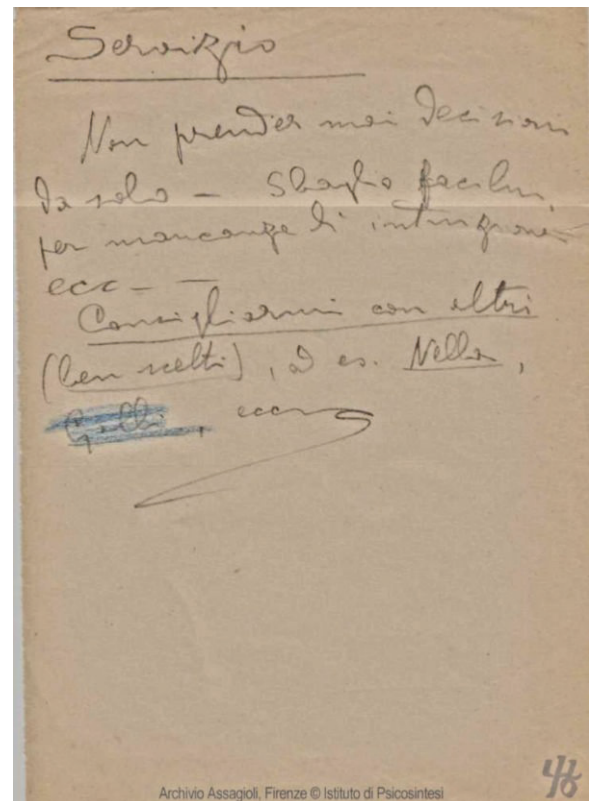 Servizio
Non prender mai decisioni
da solo — Sbaglio facilm.
per mancanza di intuizione
ecc — —
Consigliarmi con altri
(ben scelti), ad es. Nella,
ecc
Archivio Assagioli, Firenze © Istituto di Psicosintesi